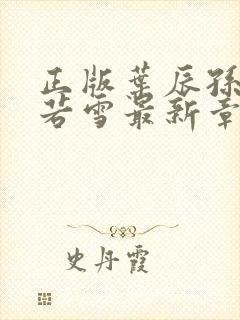 正版葉辰孫
若雪最新章
史丹霞